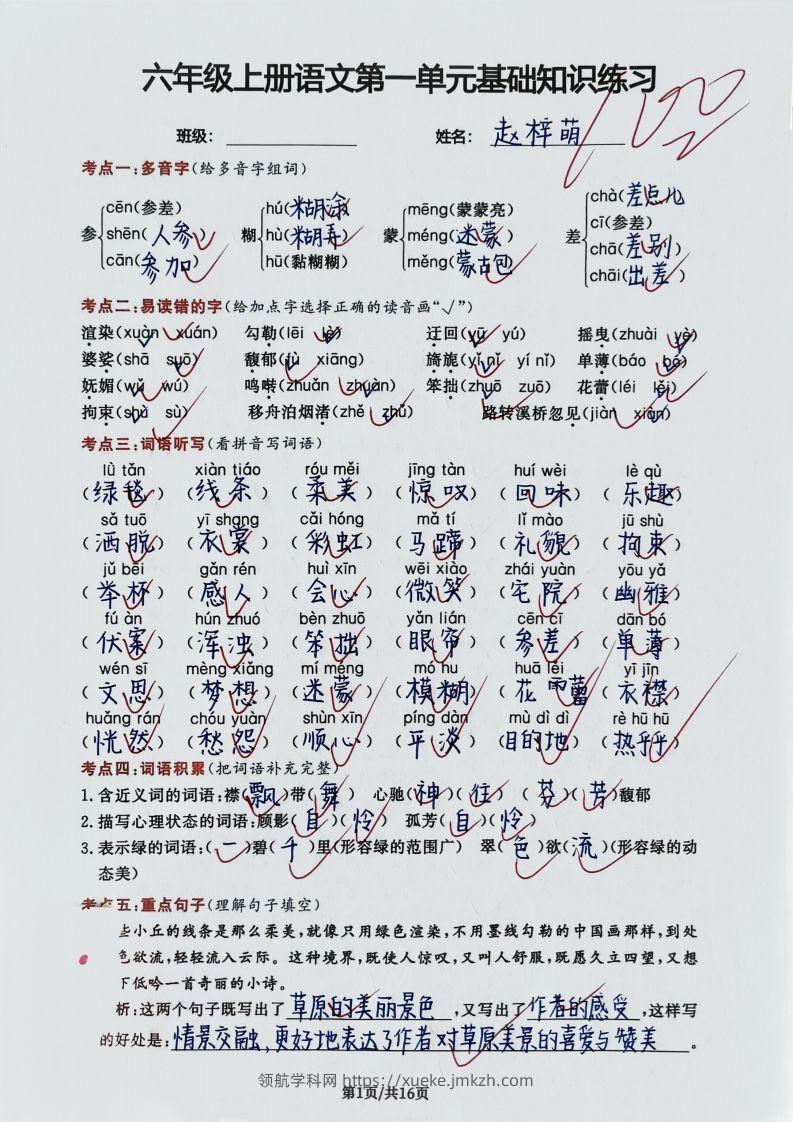 六年级上册语文第一单元基础知识练习
100
班级： 姓名：赵梓萌
考点一：多音字(给多音字组词)
参 cēn(参差) shēn(人参) cān(参加)
糊 hú(糊涂) hù(糊弄) hū(黏糊糊)
蒙 mēng(蒙蒙亮) méng(迷蒙) měng(蒙古包)
差 chà(差点儿) cī(参差) chā(差别) chāi(出差)
考点二：易读错的字(给加点字选择正确的读音画“√”)
渲染(xuàn xuán) 勾勒(lēi lè) 迂回(yū yú) 摇曳(zhuài yè)
婆娑(shā suō) 馥郁(fù xiāng) 旖旎(yǐ nǐ yí nǐ) 单薄(báo bó)
妩媚(wǔ wú) 鸣啭(zhuǎn zhuàn) 笨拙(zhuō zuō) 花蕾(léi lěi)
拘束(shù sù) 移舟泊烟渚(zhě zhǔ) 路转溪桥忽见(jiàn xiàn)
考点三：词语听写(看拼音写词语)
lǜ tǎn xiàn tiáo róu měi jīng tàn huí wèi lè qù
(绿毯) (线条) (柔美) (惊叹) (回味) (乐趣)
sǎ tuō yī shang cǎi hóng mǎ tí lǐ mào jū shù
(洒脱) (衣裳) (彩虹) (马蹄) (礼貌) (拘束)
jǔ bēi gǎn rén huì xīn wēi xiào zhái yuàn yōu yǎ
(举杯) (感人) (会心) (微笑) (宅院) (幽雅)
fú àn hún zhuó bèn zhuō yǎn lián cēn cī dān bó
(伏案) (浑浊) (笨拙) (眼帘) (参差) (单薄)
wén sī mèng xiǎng mí méng mó hu huā lěi yī jīn
(文思) (梦想) (迷蒙) (模糊) (花蕾) (衣襟)
huǎng rán chóu yuàn shùn xīn píng dàn mù dì dì rè hū hū
(恍然) (愁怨) (顺心) (平淡) (目的地) (热乎乎)
考点四：词语积累(把词语补充完整)
1. 含近义词的词语：襟(飘)带(舞) 心驰(神)(往) (芬)(芳)馥郁
2. 描写心理状态的词语：顾影(自)(怜) 孤芳(自)(怜)
3. 表示绿的词语：(一)碧(千)里(形容绿的范围广) 翠(色)欲(流)(形容绿的动
态美)
考点五：重点句子(理解句子填空)
些小丘的线条是那么柔美，就像只用绿色渲染，不用墨线勾勒的中国画那样，到处
色欲流，轻轻流入云际。这种境界，既使人惊叹，又叫人舒服，既愿久立四望，又想
下低吟一首奇丽的小诗。
析：这两个句子既写出了草原的美丽景色，又写出了作者的感受，这样写
的好处是：情景交融，更好地表达了作者对草原美景的喜爱与赞美。
领航学科网 https://xueke.jmkzh.com
第1页/共16页